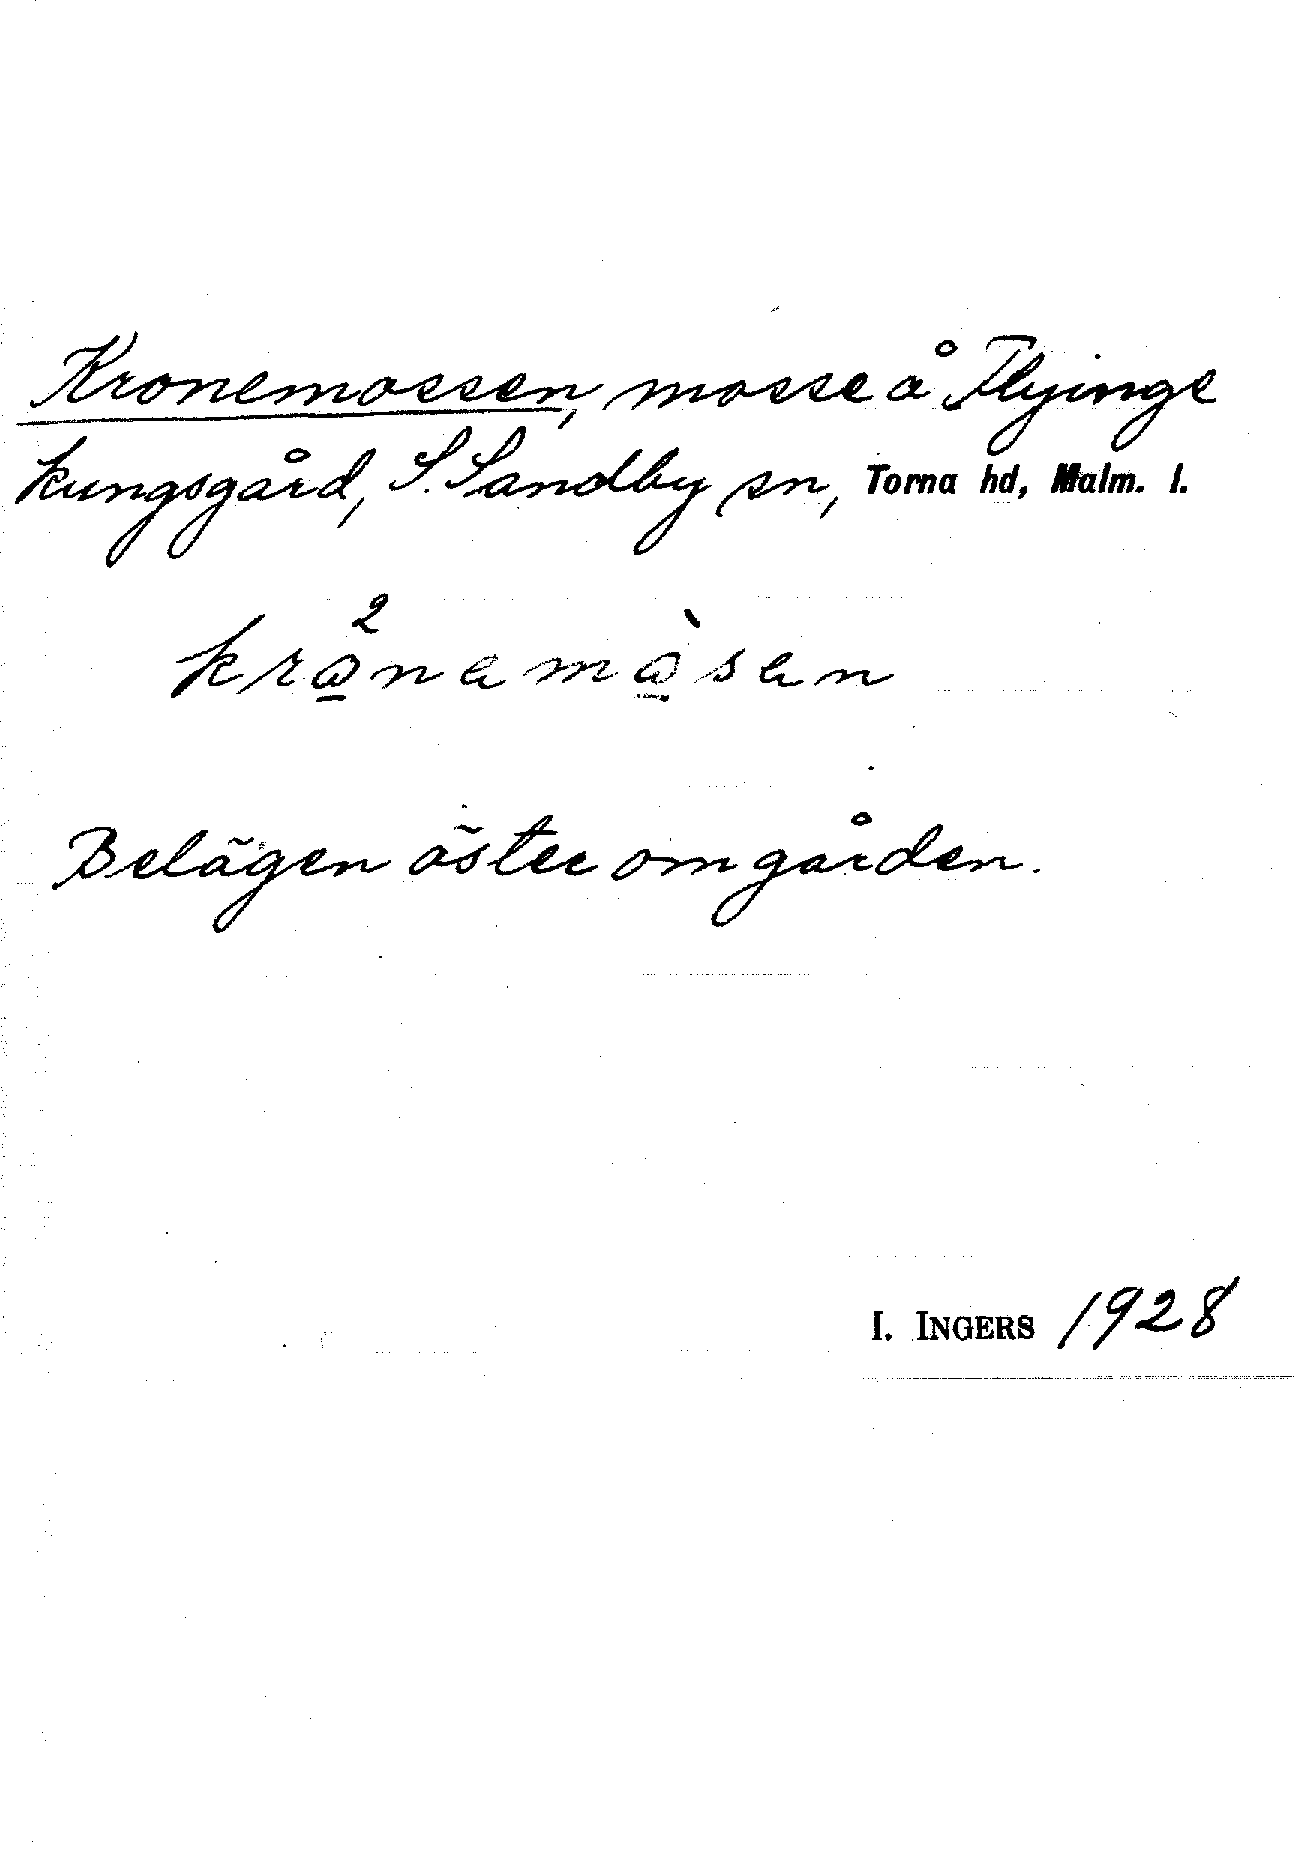 Kronemossen, mosse å Flyinge
kungsgård, S. Sandby sn, Torna hd, Malm. l.
Belägen öster om gården.
I. INGERS 1928